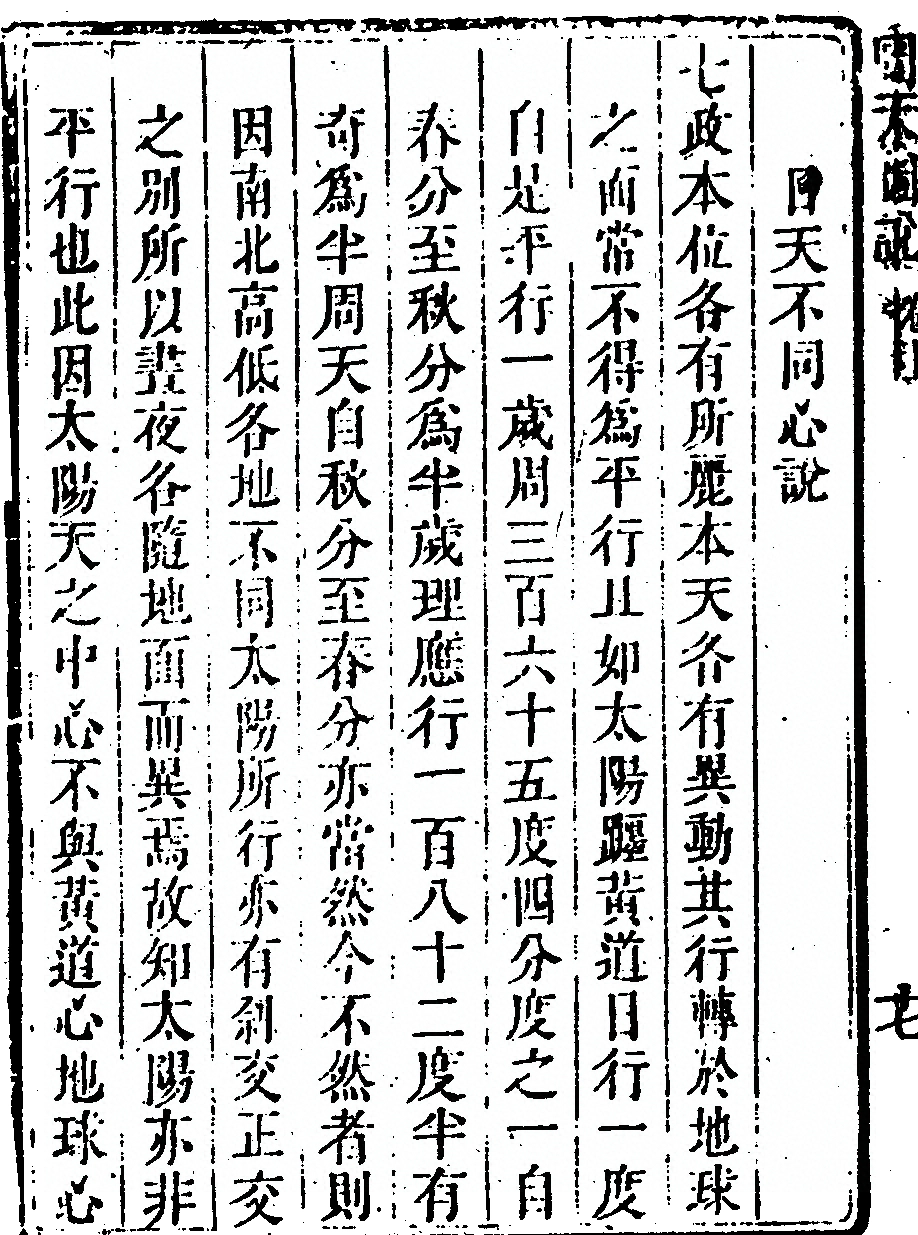 圖說
日天不同心說
七政本位各有所麗本天各有異動其行轉於地球
之面常不得爲平行且如太陽躔黃道日行一度
自是平行一歲周三百六十五度四分度之一自
春分至秋分爲半歲理應行一百八十二度半有
奇爲半周天自秋分至春分亦當然今不然者則
因南北高低各地不同太陽所行亦有斜交正交
之別所以晝夜各隨地面而異焉故知太陽亦非
平行也此因太陽天之中心不與黃道心地球心